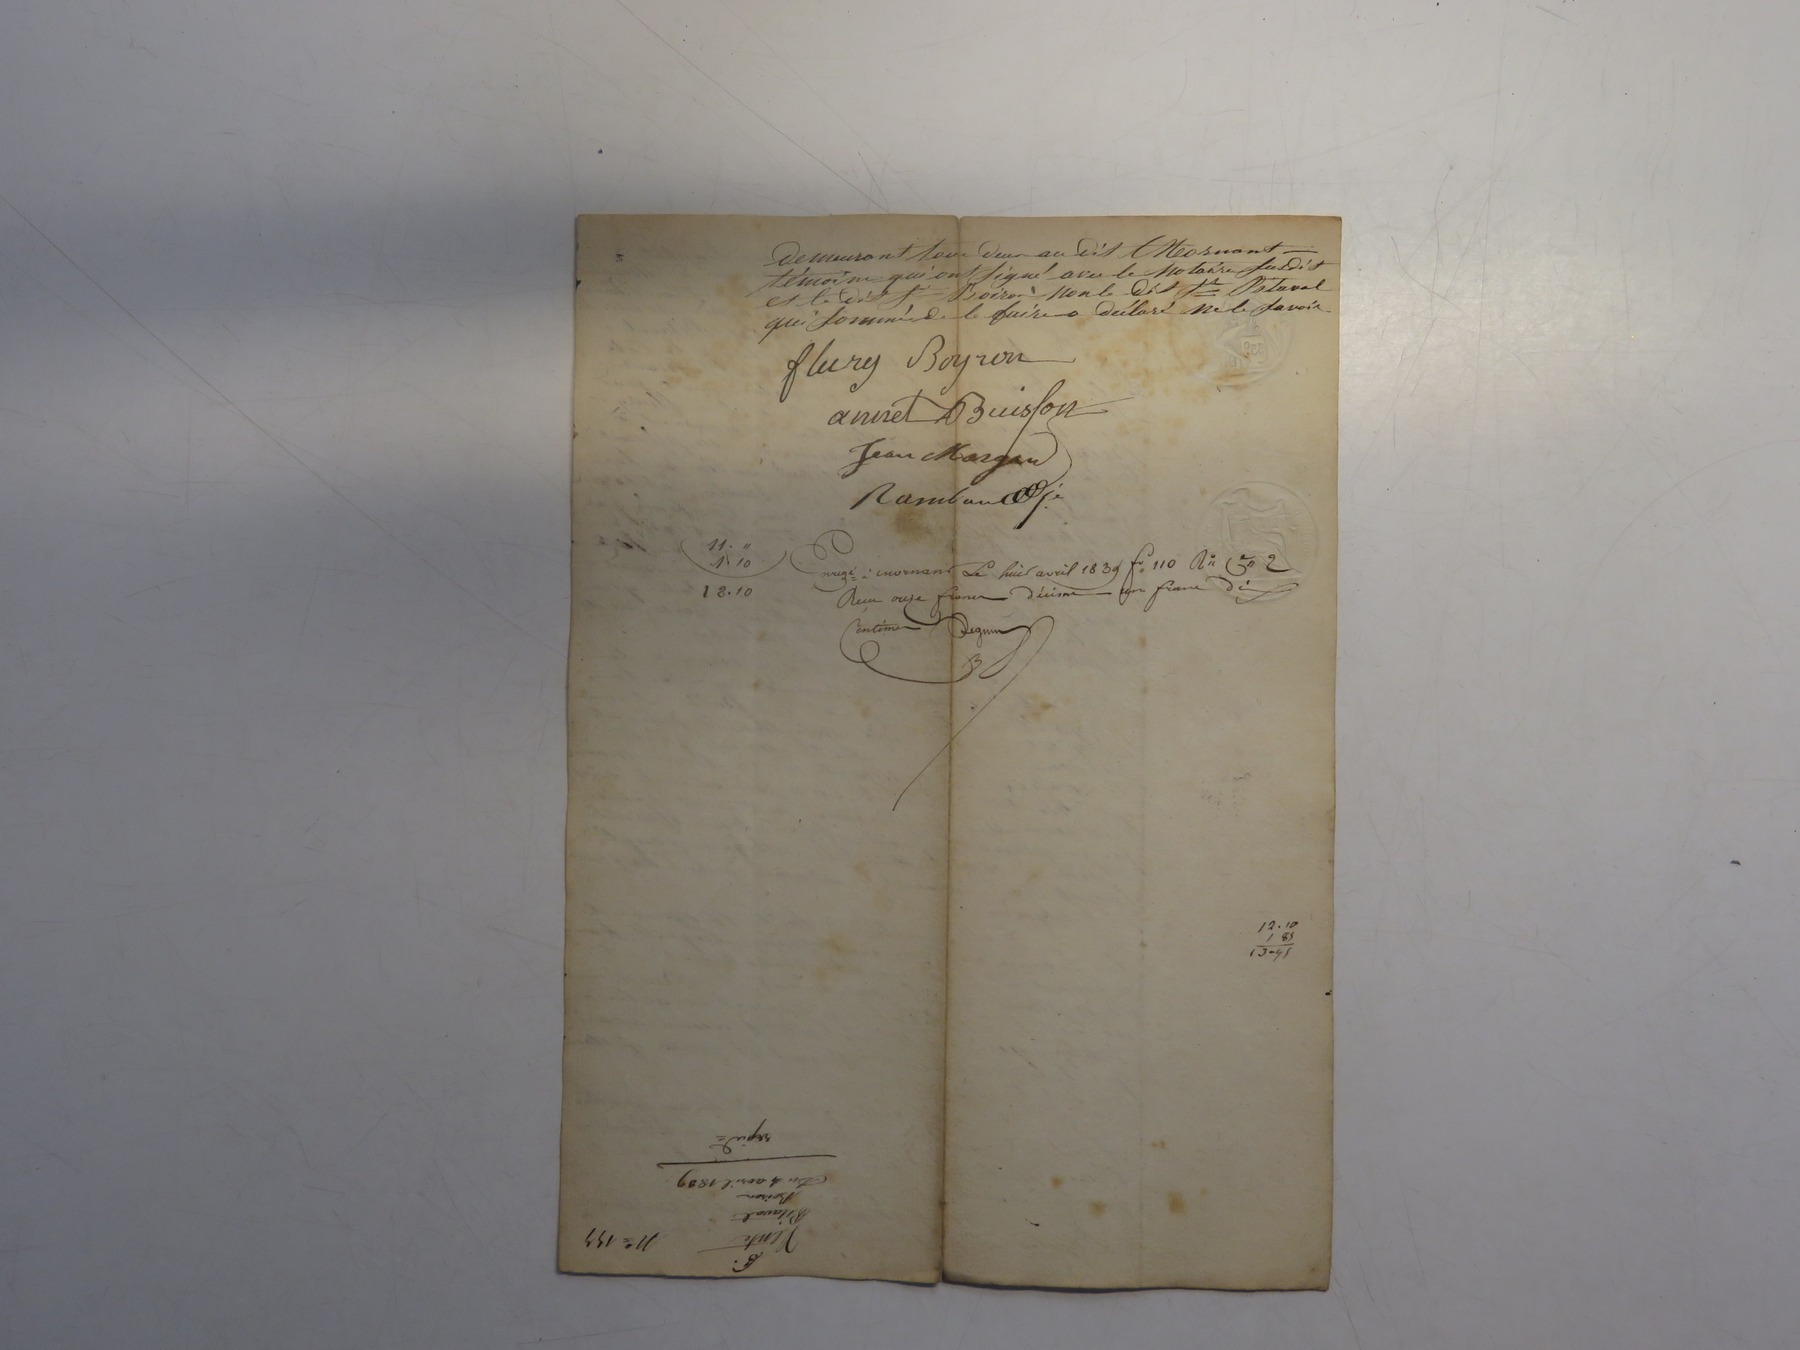 demeurant tous deux au dit Mornant
témoins qui ont signé avec le Notaire susdit
et le dit Sr Boiron non le dit Sr Pitaval
qui sommé de le faire a déclaré ne le savoir
flury Boyron
annet Buisson
Jean
Rambaud
11. "
1 10
12.10
Enregé à mornant Le huit avril 1839 fo 110 Ro Ce 2
Reçu onze francs décime un franc dix
Centimes
12.10
1 85
13-95
expede
Du 4 avril 1839
Boiron
Pitaval
Vente
No